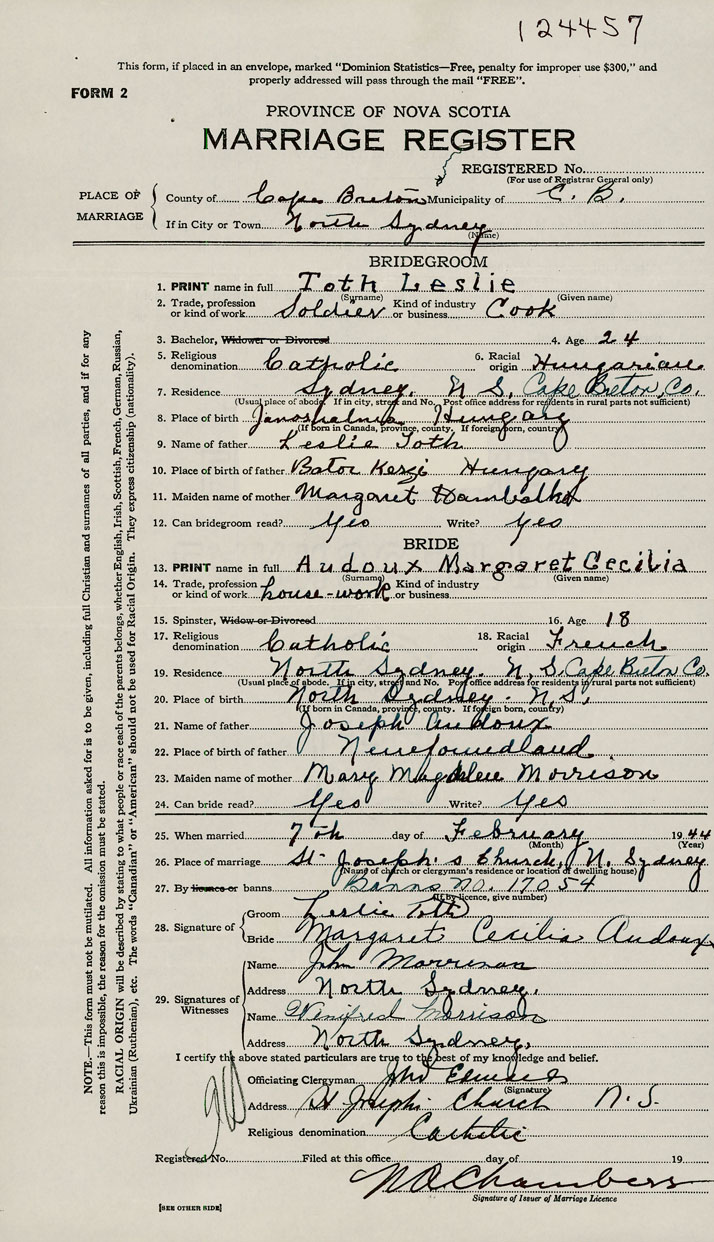 124457
This form, if placed in an envelope, marked “Dominion Statistics—Free, penalty for improper use $300,” and
properly addressed will pass through the mail “FREE”.
FORM 2
PROVINCE OF NOVA SCOTIA
MARRIAGE REGISTER
REGISTERED No.
(For use of Registrar General only)
PLACE OF MARRIAGE
County of Cape Breton Municipality of C. B.
If in City or Town North Sydney
(Name)
BRIDEGROOM
1. PRINT name in full Toth Leslie
(Surname) (Given name)
2. Trade, profession or kind of work Soldier Kind of industry or business Cook
3. Bachelor, Widower or Divorced 4. Age 24
5. Religious denomination Catholic 6. Racial origin Hungarian
7. Residence Sydney, N S, Cape Beton, Co.
(Usual place of abode. If in city, street and No. Post office address for residents in rural parts not sufficient)
8. Place of birth Hungary
(If born in Canada, province, county. If foreign born, country)
9. Name of father Leslie Toth
10. Place of birth of father Bator Hungary
11. Maiden name of mother Margaret
12. Can bridegroom read? Yes Write? Yes
BRIDE
13. PRINT name in full Audoux Margaret Cecilia
(Surname) (Given name)
14. Trade, profession or kind of work house-work Kind of industry or business
15. Spinster, Widow or Divorced 16. Age 18
17. Religious denomination Catholic 18. Racial origin French
19. Residence North Sydney. N, S, Cape Beton Co.
(Usual place of abode. If in city, street and No. Post office address for residents in rural parts not sufficient)
20. Place of birth North Sydney. N, S,
(If born in Canada, province, county. If foreign born, country)
21. Name of father Joseph Audoux
22. Place of birth of father Newfoundland
23. Maiden name of mother Mary Magdalene Morrison
24. Can bride read? Yes Write? Yes
25. When married 7th day of February 1944
(Month) (Year)
26. Place of marriage St. Joseph's Church, N. Sydney
(Name of church or clergyman's residence or location of dwelling house)
27. By licence or banns Banns No. 17054
(If by licence, give number)
28. Signature of
Groom Leslie Toth
Bride Margaret Cecilia Audoux
29. Signatures of Witnesses
Name John Morrison
Address North Sydney,
Name Winifred Morrison
Address North Sydney,
I certify the above stated particulars are true to the best of my knowledge and belief.
Officiating Clergyman
(Signature)
Address St Josephs Church N. S.
Religious denomination Catholic
Registered No. Filed at this office day of 19
Chambers
Signature of Issuer of Marriage Licence
[SEE OTHER SIDE]
NOTE.—This form must not be mutilated. All information asked for is to be given, including full Christian and surnames of all parties, and if for any
reason this is impossible, the reason for the omission must be stated.
RACIAL ORIGIN will be described by stating to what people or race each of the parents belongs, whether English, Irish, Scottish, French, German, Russian,
Ukrainian (Ruthenian), etc. The words “Canadian” or “American” should not be used for Racial Origin. They express citizenship (nationality).